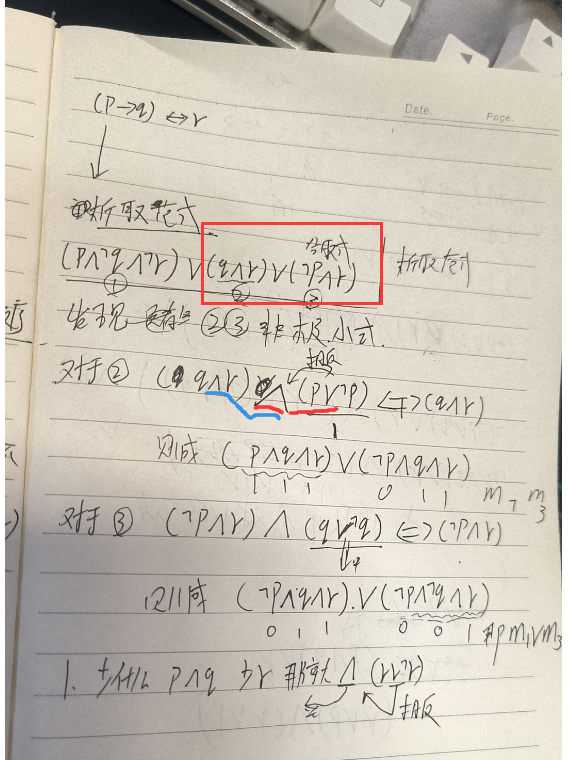 Date. Page.
(P→q) ↔ r
析取范式
合取式
(P∧¬q∧¬r) ∨ (q∧r) ∨ (¬P∧r) 析取范式
① ② ③
发现 ②③ 非极小式.
扭反
对于② (q∧r) ∧ (P∨¬P) <=> (q∧r)
1
则成 (P∧q∧r) ∨ (¬P∧q∧r)
1 1 1 0 1 1 m7 m3
对于③ (¬P∧r) ∧ (q∨¬q) <=> (¬P∧r)
则成 (¬P∧q∧r).∨(¬P∧¬q∧r)
0 1 1 0 0 1 即 m1∨m3
1. 为什么 P∧q 少r 那就 ∧ (r∨¬r)